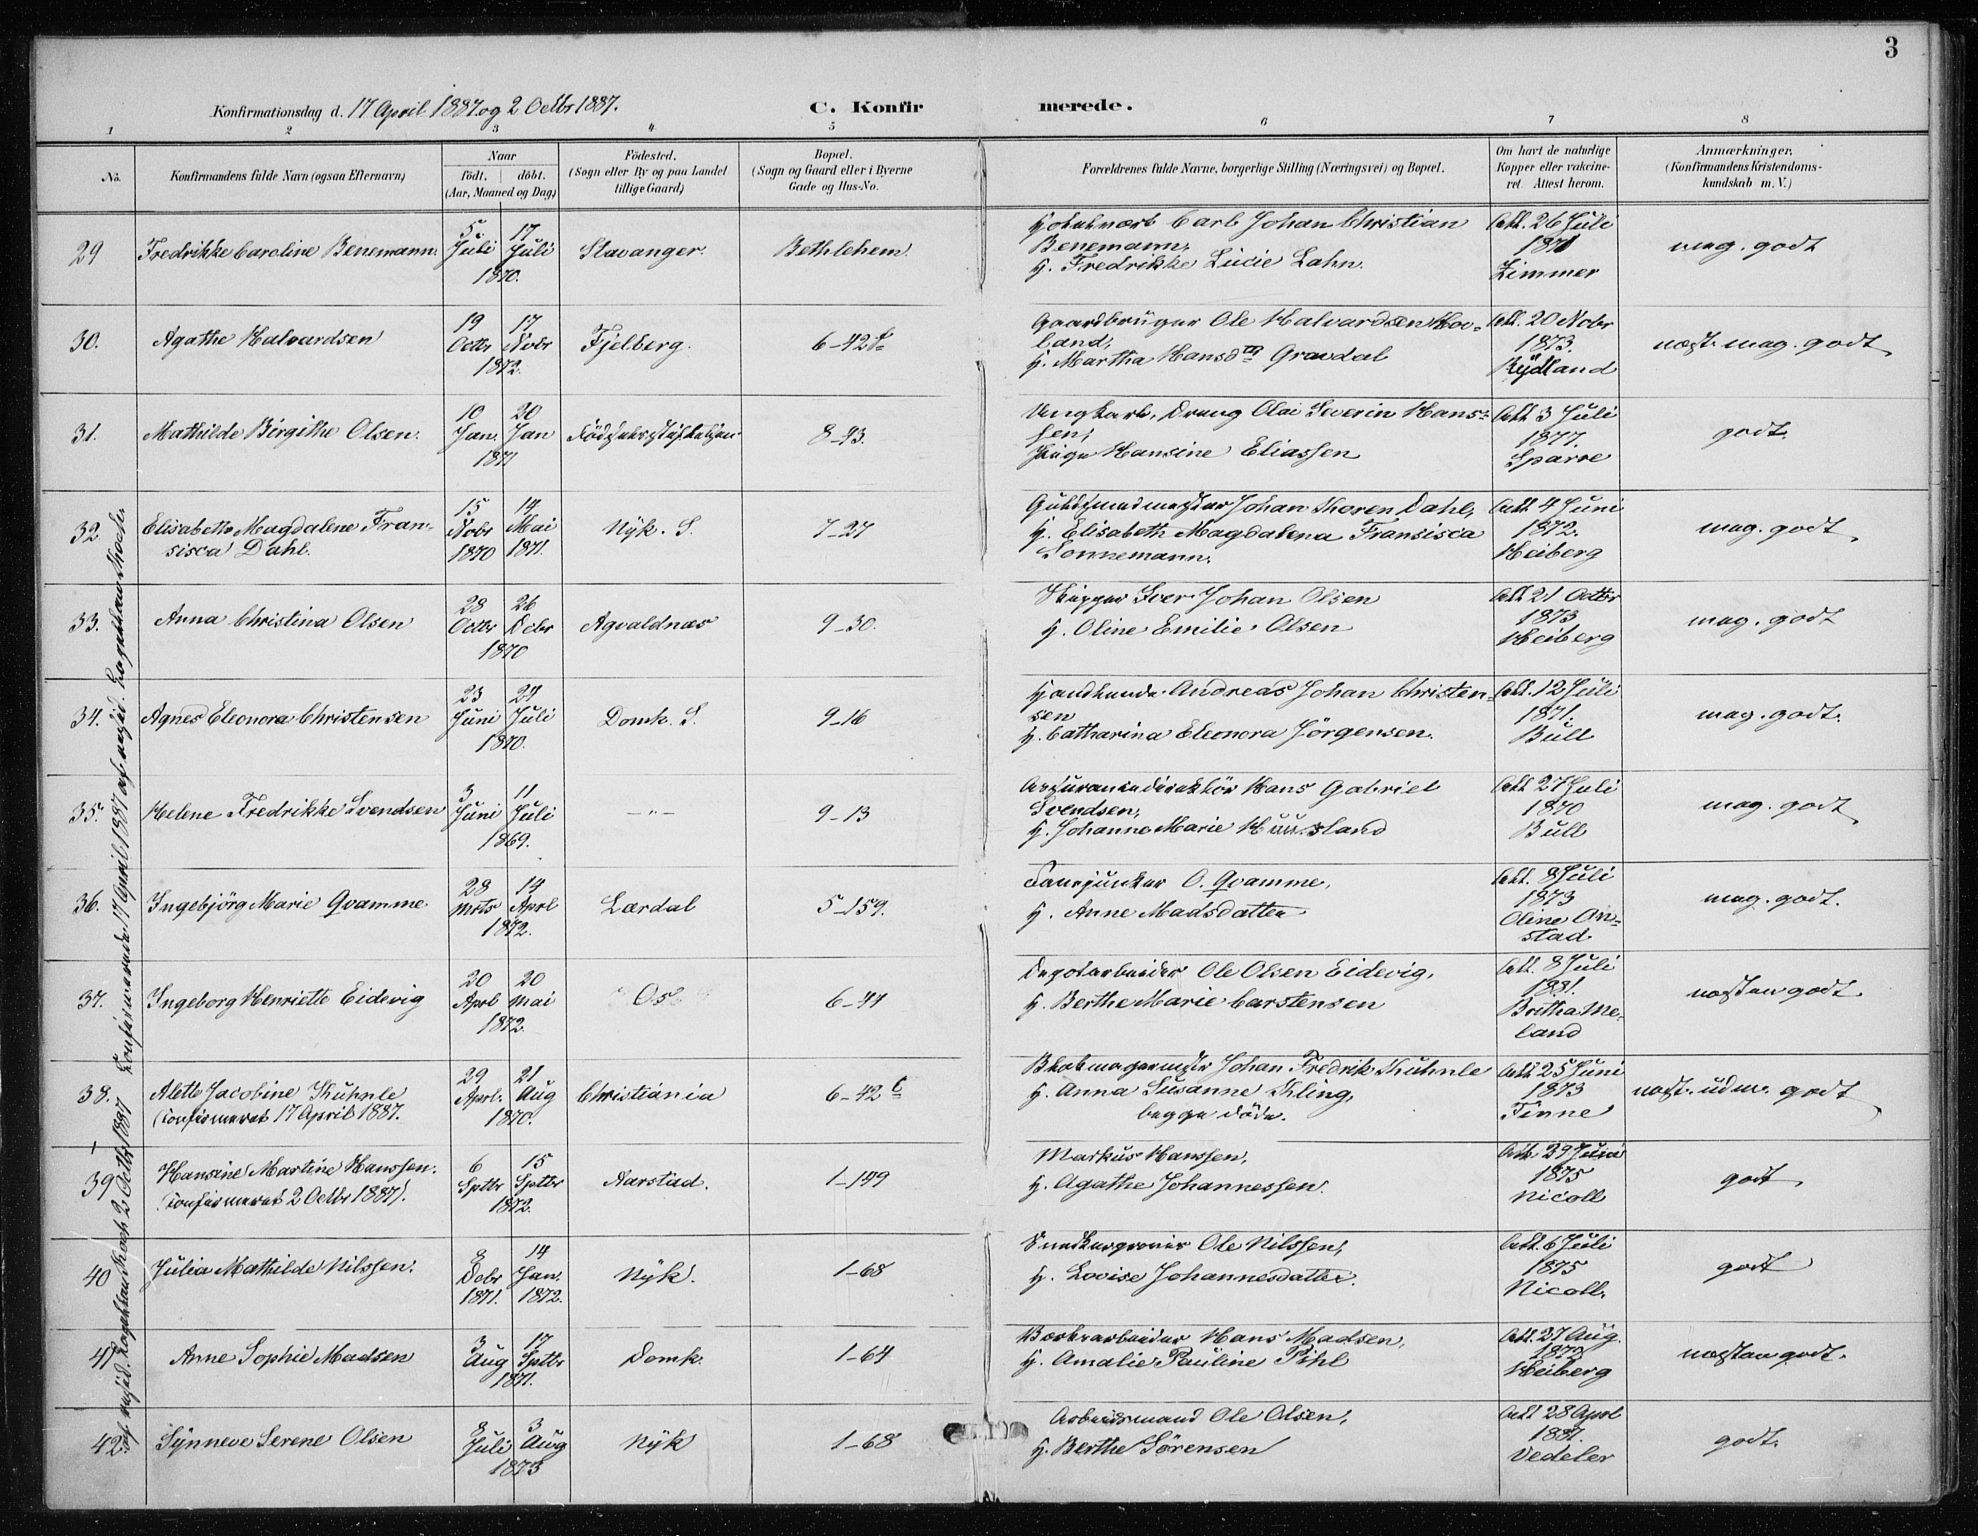 3
Konfirmationsdag d. 17 April 1887 og 2 Octbr 1887.
C. Konfirmerede.
1 2 3 4 5 6 7 8
No.
Konfirmandens fulde Navn (ogsaa Efternavn)
Naar
födt. döbt.
(Aar, Maaned og Dag)
Födested.
(Sogn eller By og paa Landet
tillige Gaard)
Bopæl.
(Sogn og Gaard eller i Byerne
Gade og Hus-No.
Forældrenes fulde Navne, borgerlige Stilling (Næringsvei) og Bopæl.
Om havt de naturlige
Kopper eller vakcine-
ret. Attest herom.
Anmærkninger.
(Konfirmandens Kristendoms-
kundskab m. V.)
29 Fredrikke Caroline Benemann. 5 Juli 17 Juli 1870. Stavanger. Bethlehem.
Carl Johan Christian
Benemann,
H. Fredrikke Lucie Lahn.
Att. 26 Juli
1871
Zimmer
mag. godt
30. Agathe Halvardsen 19 Octbr 17 Nobr 1872. Fjelberg. 6-42
Gaardbruger Ole Halvardsen Hov-
land,
H. Martha Hansdtr Gravdal
Att. 20 Nobr
1873.
Rydland
næst. mag. godt
31. Mathilde Birgithe Olsen. 10 Jan. 20 Jan 1871 Födselsstiftelsen 8-93.
Ungkarl, Dreng Olai Severin Hans-
sen,
Pige Hansine Eliassen
Att 3 Juli
1877.
Sparre
godt.
32. Elisabeth Magdalene Fran-
sisca Dahl. 15 Nobr 1870 14 Mai 1871. Nyk. S. 7-27
Guldsmedmester Johan Thoren Dahl,
H. Elisabeth Magdalena Fransisca
Sonnemann.
Att 4 Juni
1872.
Heiberg
mag. godt
33. Anna Christina Olsen 28 Octbr 26 Debr 1870 Agvaldnæs 9-30.
Skipper Iver Johan Olsen
H. Oline Emilie Olsen
Att 21 Octbr
1873
Heiberg
mag. godt
34. Agnes Eleonora Christensen 23 Juni 24 Juli 1870. Domk. S. 9-16
Handlende Andreas Johan Christen-
sen
H. Catharina Eleonora Jörgensen.
Att. 12 Juli
1871.
Bull
mag. godt.
35. Helene Fredrikke Svendsen 3 Juni 11 Juli 1869. —„— 9-13
Assurancedirektör Hans Gabriel
Svendsen,
H. Johanne Marie Huusland
Att 27 Juli
1870
Bull
mag. godt
36. Ingebjörg Marie Qvamme 28 Mrts 14 Aprl 1872. Lærdal 5-159.
Fanejunker O. Qvamme,
H. Anne Madsdatter
Att. 8 Juli
1873
Oline On-
stad
mag. godt.
37. Ingeborg Henriette Eidevig 20 Aprl 20 Mai 1872. Os 6-44
Depotarbeider Ole Olsen Eidevig,
H. Berthe Marie Carstensen
Att. 8 Juli
1881.
Britha Me-
land
næsten godt
38. Alette Jacobine Kuhnle
(Konfirmeret 17 April 1887. 29 Aprl. 21 Aug 1870. Christiania 6-42 c
Johan Fredrik Kuhnle
H. Anna Susanne Kling,
begge döde.
Att 25 Juni
1873
Finne
næst. udm. godt
39 Hansine Martine Hanssen.
(Konfirmeret 2 Octbr 1887). 6 Sptbr 15 Sptbr 1872. Aarstad. 1-149
Markus Hanssen,
H. Agathe Johannessen.
Att 29 Juni
1875
Nicoll
godt
40 Julia Mathilde Nilssen. 8 Debr 1871. 14 Jan. 1872. Nyk. 1-68
Snedkersvend Ole Nilssen,
H. Lovise Johannesdatter.
Att. 6 Juli
1875
Nicoll.
godt
41 Anne Sophie Madsen 3 Aug 17 Sptbr 1871. Domk. 1-64
Værksarbeider Hans Madsen,
H. Amalie Pauline Pihl
Att. 27 Aug.
1872
Heiberg
næsten godt.
42. Synneve Serene Olsen 8 Juli 3 Aug 1873 Nyk 1-68
Arbeidsmand Ole Olsen,
H. Berthe Sörensen
Att 28 Aprl
1887.
Vedeler
godt.
Konfirmerede 17 April 1887 af resid. Kapellan Koch
af resid. Kapellan Koch 2 Octbr 1887